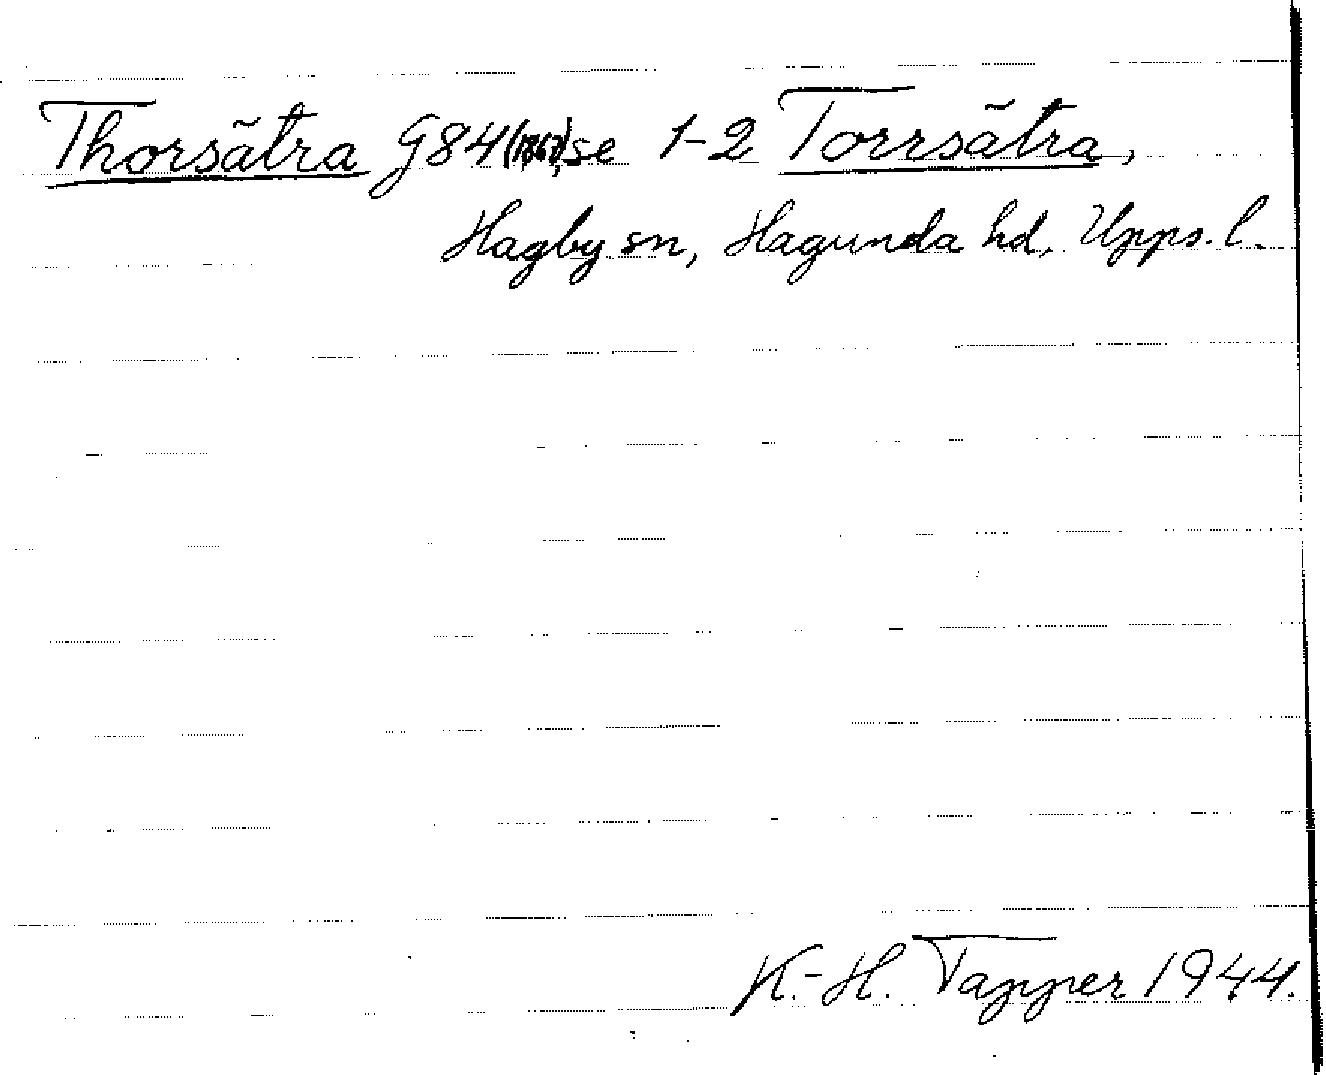 Thorsätra G84(1867), se 1-2 Torrsätra,
Hagby sn, Hagunda hd, Upps. l.
K.-H. Tapper 1944.